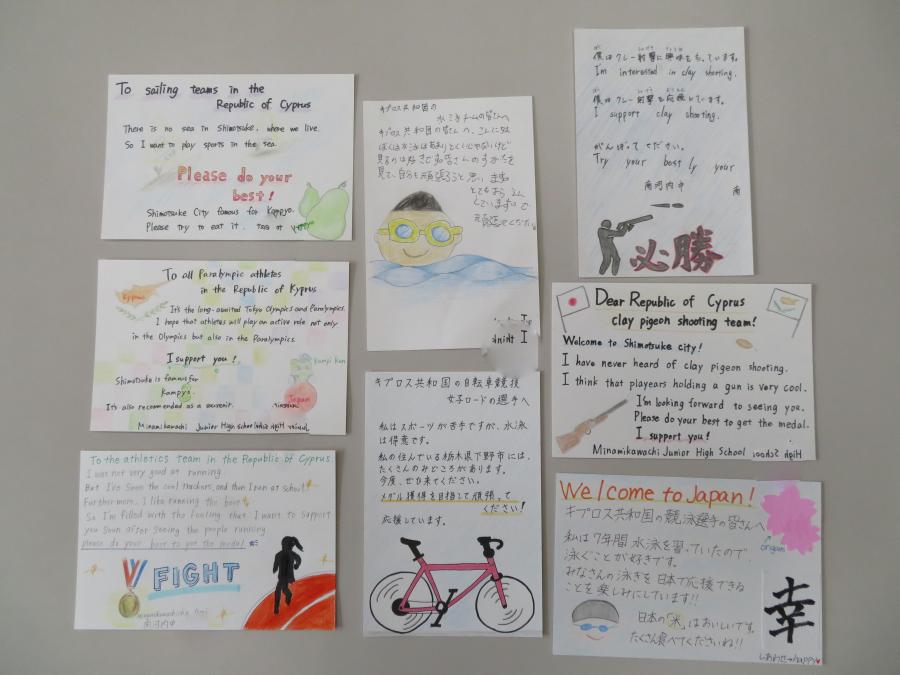 To sailing teams in the
Republic of Cyprus
There is no sea in Shimotsuke, where we live.
So I want to play sports in the sea.
Please do your
best!
Shimotsuke City famous for Kampyo.
Please try to eat it.
To all Paralympic athletes
in the Republic of Kyprus
Kyprus
It's the long-awaited Tokyo Olympics and Paralympics.
I hope that athletes will play an active role not only
in the Olympics but also in the Paralympics.
I support you!
Kampi Kun
Shimotsuke is famous for
Kampyo.
Japan
It's also recommended as a souvenir.
Minamikawachi Junior High school
To the athletics team in the Republic of Cyprus
I was not very good at running.
But I've soon the cool trackers, and then I run at school.
Furthermore, I like running the best
So I'm filled with the feeling that I want to support
you soon after seeing the people running
please do your best to get the medal
FIGHT
南河内中
キプロス共和国の
水泳チームの皆さんへ
キプロス共和国の皆さんへ、こんにちは
ぼくは水泳はあまりとくいじゃないけど
見るのは好きで皆さんのすがたを
見て、自分も頑張ろうと思います
とてもおうえん
していますので
I think
キプロス共和国の自転車競技
女子ロードの選手へ
私はスポーツが苦手ですが、水泳
は得意です。
私の住んでいる栃木県下野市には、
たくさんのみどころがあります。
今度、ぜひ来てください。
メダル獲得を目指して頑張って
ください!
応援しています。
僕はクレー射撃に興味をもっています。
I'm interested in clay shooting.
僕はクレー射撃を応援しています。
I support clay shooting.
がんばってください。
Try your best ly your
南河内中
南
必勝
Dear Republic of Cyprus
clay pigeon shooting team!
Welcome to Shimotsuke city!
I have never heard of clay pigeon shooting.
I think that playears holding a gun is very cool.
I'm looking forward to seeing you.
Please do your best to get the medal.
I support you!
Minamikawachi Junior High School
Welcome to Japan!
キプロス共和国の競泳選手の皆さんへ
origami
私は7年間水泳を習っていたので
泳ぐことが好きです。
みなさんの泳ぎを日本で応援できる
ことを楽しみにしています!!
日本の米はおいしいです。
たくさん食べてくださいね!!
幸
しあわせ→happy♥